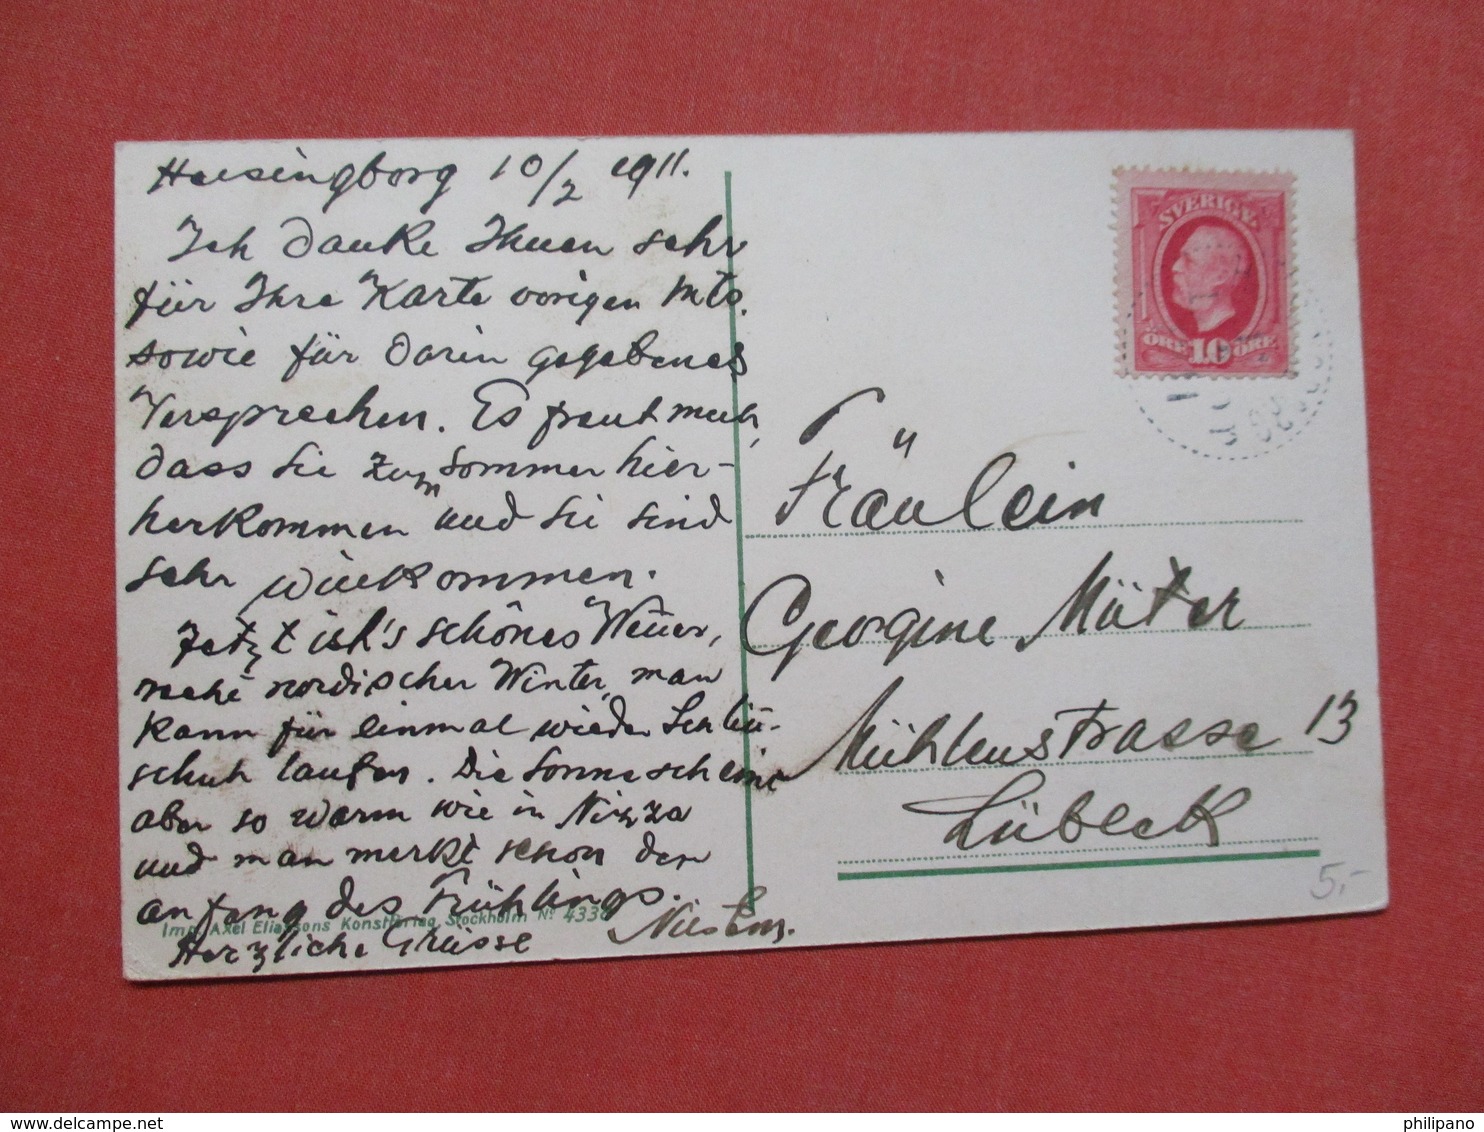 Helsingborg 10/2 1911.
Ich danke Ihnen sehr
für Ihre Karte vorigen Mts.
sowie für darin gegebenes
Versprechen. Es freut mich,
dass Sie zum Sommer hier-
herkommen und Sie sind
sehr willkommen.
Jetzt ist's schönes Wetter,
recht nordischer Winter, man
kann für einmal wieder Schlitt-
schuh laufen. Die Sonne scheint
aber so warm wie in Nizza
und man merkt schon den
anfang des Frühlings.
Herzliche Grüsse
Imp. Axel Eliassons Konstförlag, Stockholm No
SVERIGE
ÖRE 10 ÖRE
Fräulein
Georgine Müter
Mühlenstrasse 13
Lübeck
5,-
philipano
www.delcampe.net